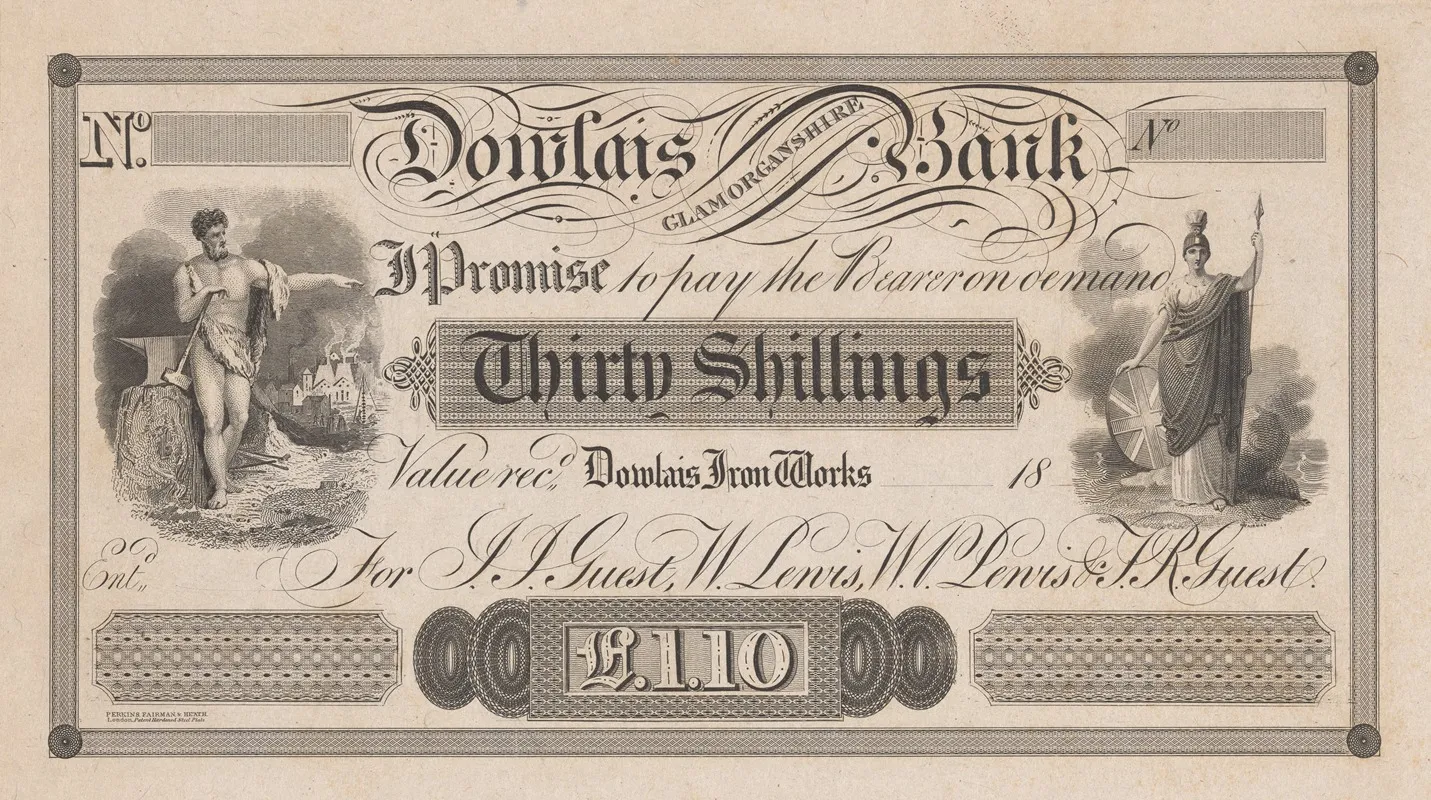 Nº. Dowlais GLAMORGANSHIRE Bank Nº
I Promise to pay the Bearer on demand
Thirty Shillings
Value recd,, Dowlais Iron Works 18
Entd,, For J. J. Guest, W. Lewis, W. P. Lewis & T. R. Guest.
£.1.10
PERKINS, FAIRMAN & HEATH.
London, Patent Hardened Steel Plate